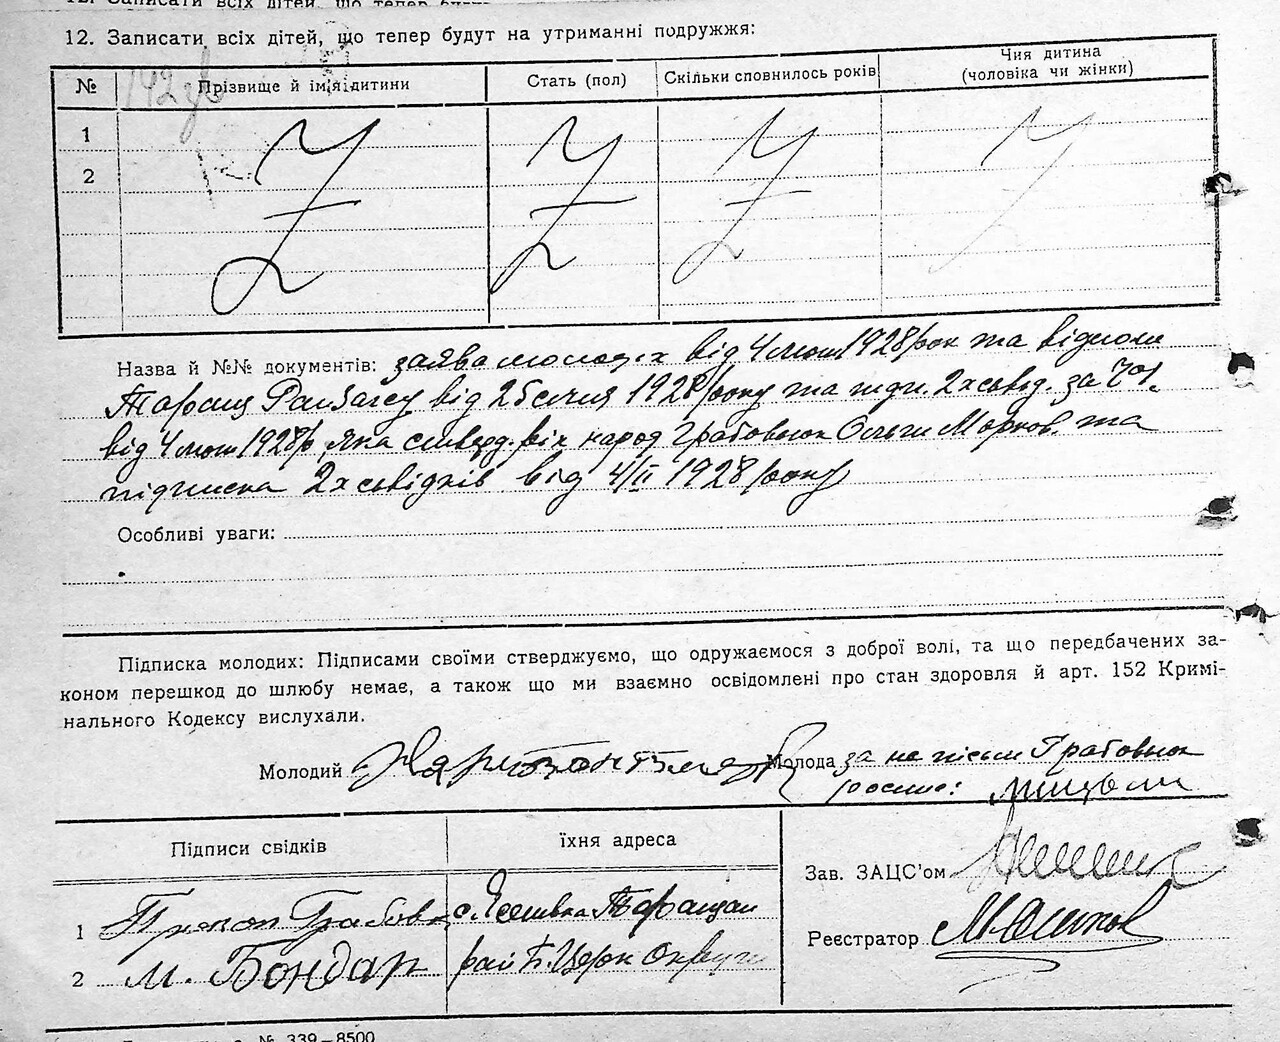 12. Записати всіх дітей, що тепер будут на утриманні подружжя:
№ Прізвище й ім'я дитини Стать (пол) Скільки сповнилось років Чия дитина (чоловіка чи жінки)
1
2
Назва й №№ документів: заява молодих від 4 лют 1928 рок та відмом
від 25 січня 1928 року та підп. 2х свід. за
від 4 лют 1928 р, яка народ Грабовиюк Ольги Марков. та
підписка 2х свідків від 4/II 1928 року
Особливі уваги:
Підписка молодих: Підписами своїми стверджуємо, що одружаємося з доброї волі, та що передбачених за-
коном перешкод до шлюбу немає, а також що ми взаємно освідомлені про стан здоровля й арт. 152 Кримі-
нального Кодексу вислухали.
Молодий Молода за не письм
Підписи свідків їхня адреса
Зав. ЗАЦС'ом
1 Прокоп Грабов с. Ясенівка Таращан
Реєстратор
2 М. Бондар рай Б. Церк Округи
№ 339—8500